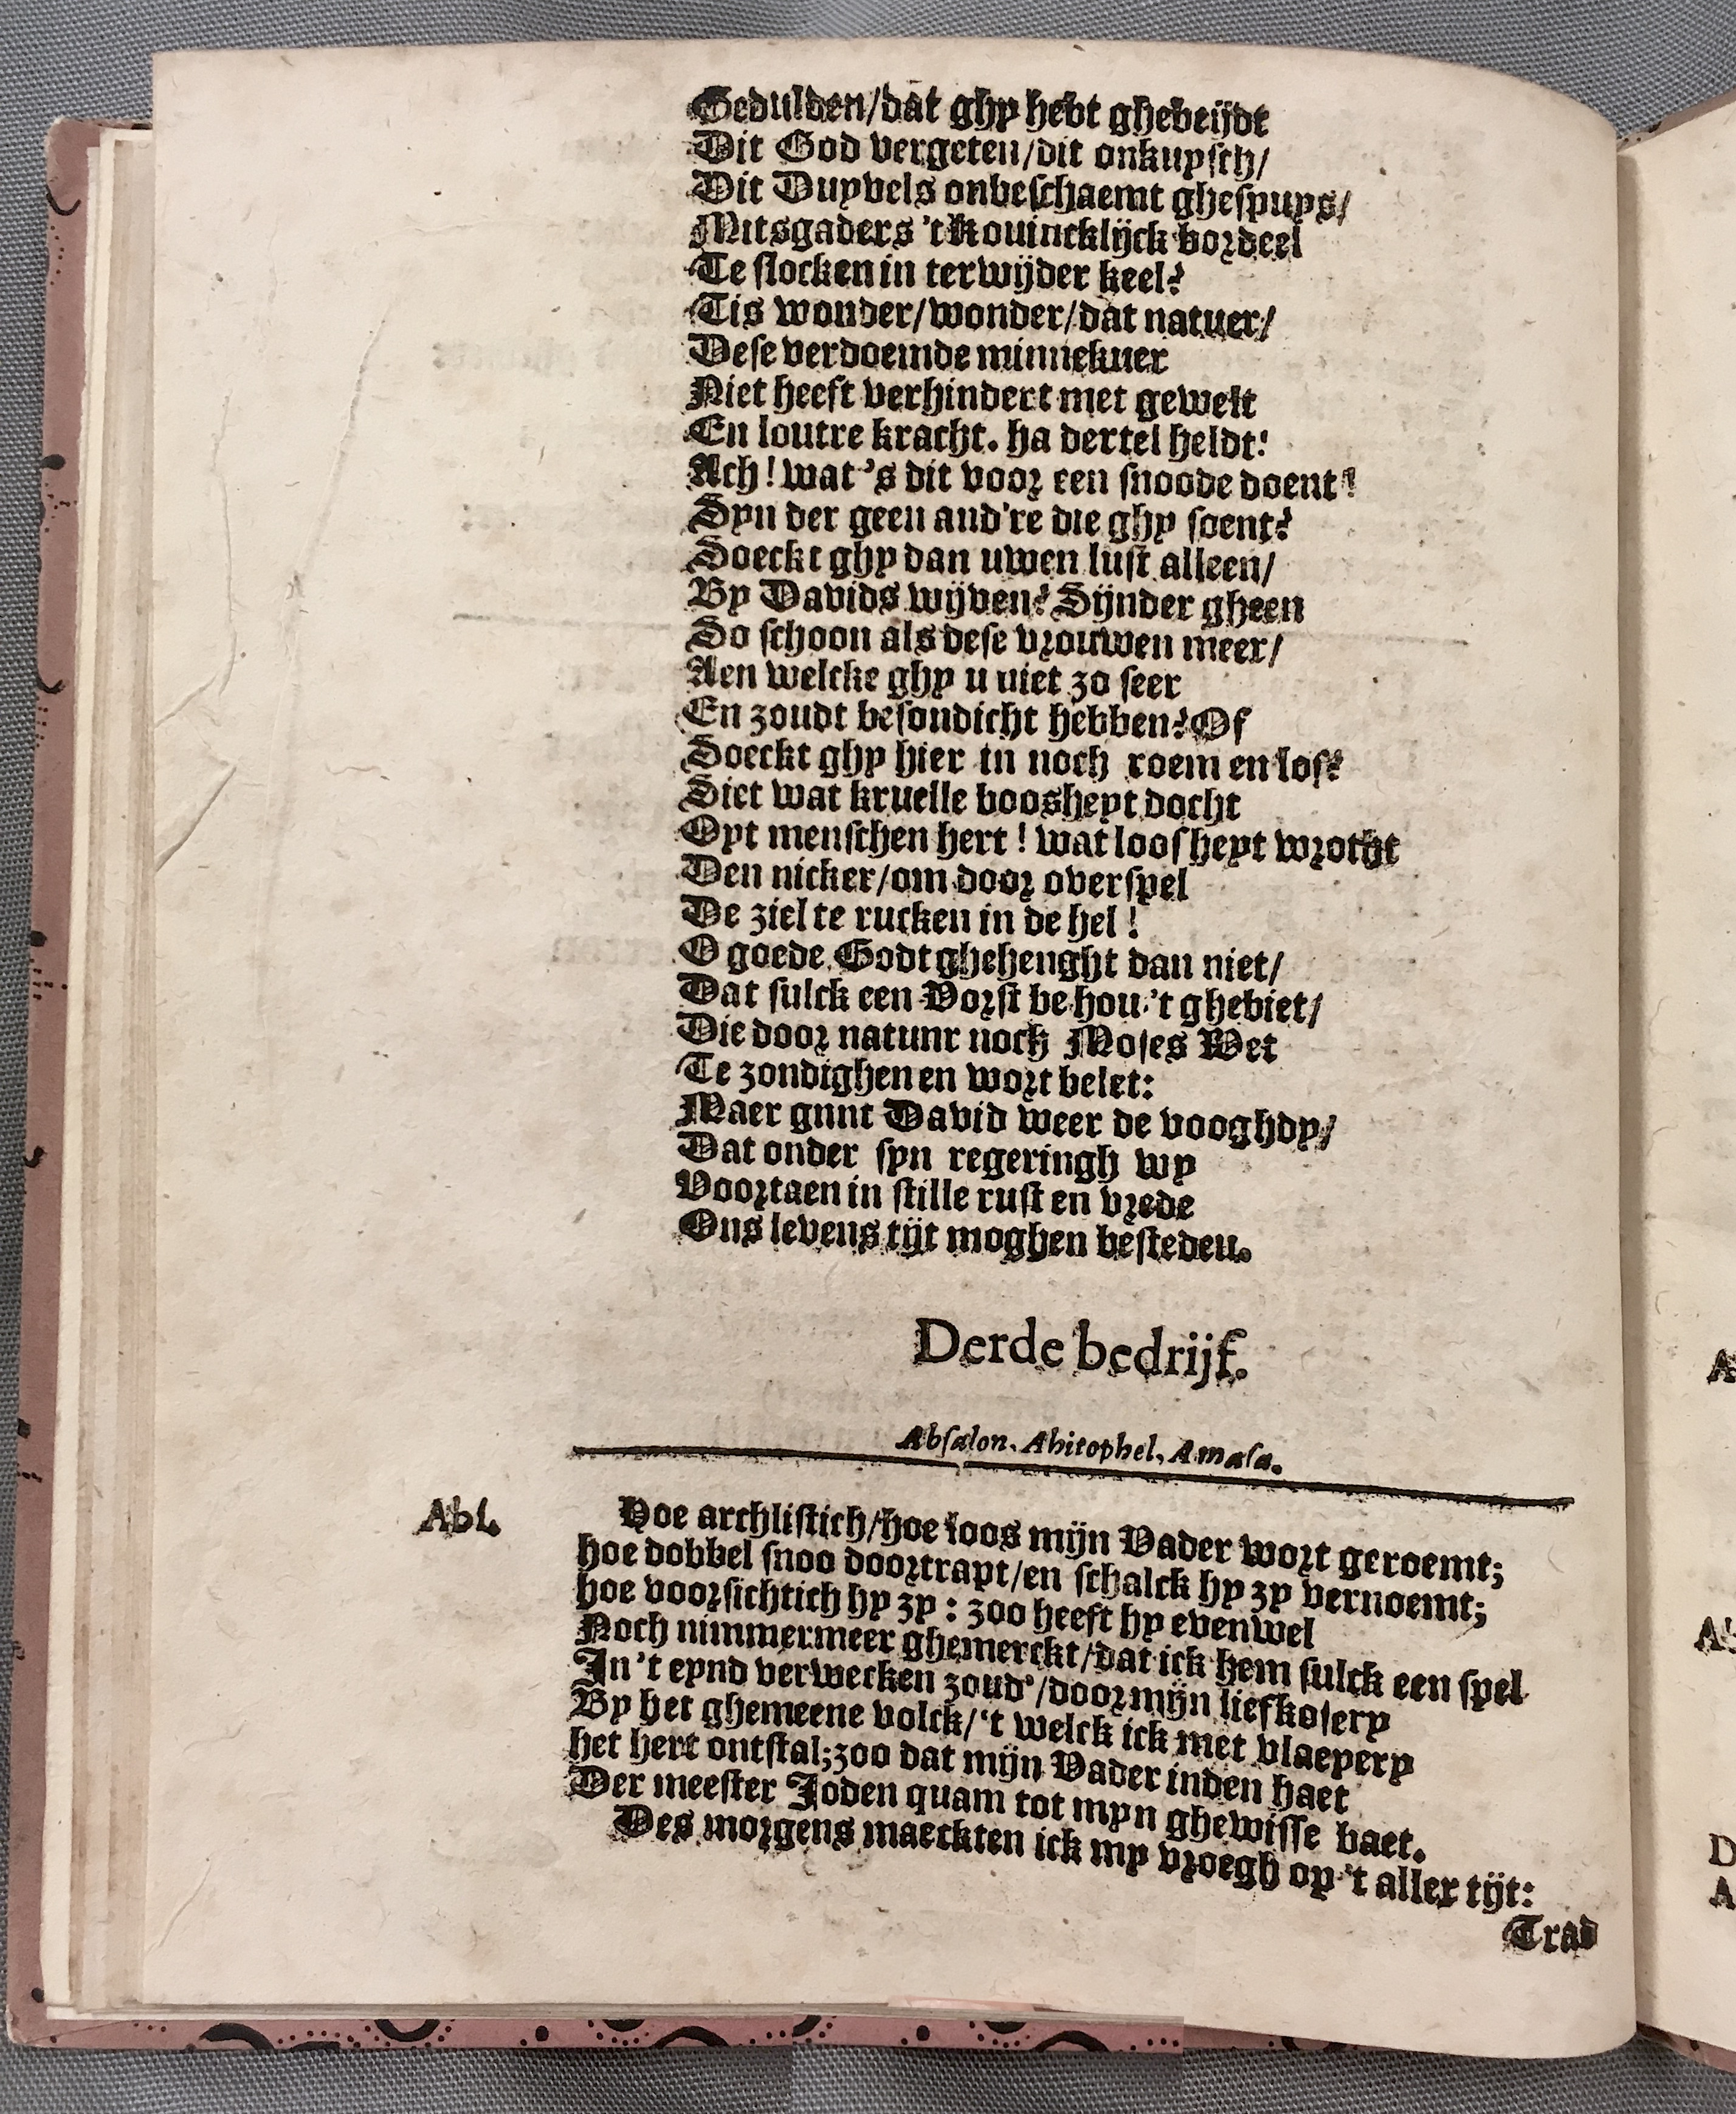 Gedulden/dat ghy hebt ghebeijdt
Dit God vergeten/dit onkuysch/
Dit Duyvels onbeschaemt ghespuys/
Mitsgaders 't Kouincklijck bordeel
Te slocken in ter wijder keel?
Tis wonder/wonder/dat natuer/
Dese verdoemde minnekuer
Niet heeft verhindert met gewelt
En loutre kracht. ha dertel heldt!
Ach! wat 's dit voor een snoode doent!
Syn der geen and're die ghy soent?
Soeckt ghy dan uwen lust alleen/
By Davids wijven? Sijnder gheen
So schoon als dese vrouwen meer/
Aen welcke ghy u niet zo seer
En zoudt besondicht hebben? Of
Soeckt ghy hier in noch roem en lof?
Siet wat kruelle boosheyt docht
Opt menschen hert! wat loosheyt wrocht
Den nicker/om door overspel
De ziel te rucken in de hel!
O goede Godt ghehenght dan niet/
Dat sulck een Vorst behou 't ghebiet/
Die door natunr noch Moses Wet
Te zondighen en wort belet:
Maer gunt David weer de vooghdy/
Dat onder syn regeringh wy
Voortaen in stille rust en vrede
Ons levens tijt moghen besteden.
Derde bedrijf.
Absalon. Ahitophel. Amasa.
Abs. Hoe archlistich/hoe loos mijn Vader wort geroemt;
hoe dobbel snoo doortrapt/en schalck hy zy vernoemt;
hoe voorsichtich hy zy: zoo heeft hy evenwel
Noch nimmermeer ghemerckt/dat ick hem sulck een spel
In 't eynd verwecken zoud'/door mijn liefkosery
By het ghemeene volck/'t welck ick met vlaeyery
het hert ontstal; zoo dat mijn Vader inden haet
Der meester Joden quam tot myn ghewisse baet.
Des morgens maeckten ick my vroegh op 't aller tijt:
Trad
A
D
A